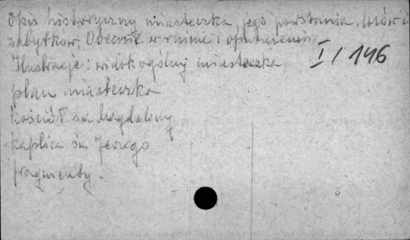 Opis historyczny miasteczka, jego powstania, losów i
zabytków. Obecnie w ruinie i opuszczeniu.
Ilustracje: widok ogólny miasteczka
I/146
plan miasteczka
Kościół św. Magdaleny
Kaplica św. Jerzego
fragmenty.